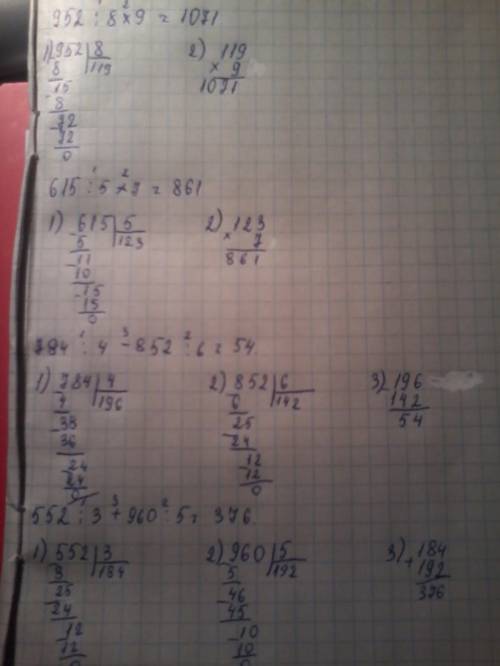 952 : 8 × 9 = 1071
1) 952 | 8    2) 119
8 | 119    × 9
15    1071
8
72
72
0
615 : 5 × 7 = 861
1) 615 | 5    2) 123
5 | 123    × 7
11    861
10
15
15
0
784 : 4 - 852 : 6 = 54
1) 784 | 4    2) 852 | 6    3) 196
4 | 196    6 | 142    142
38    25    54
36    24
24    12
24    12
0    0
552 : 3 + 960 : 5 = 376
1) 552 | 3    2) 960 | 5    3) 184
3 | 184    5 | 192    + 192
25    46    376
24    45
12    10
12    10
0    0